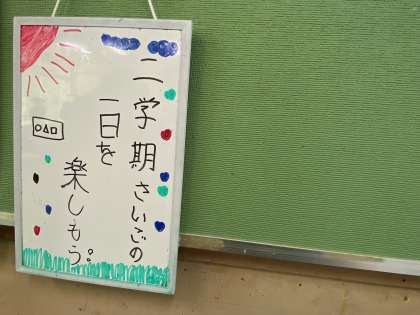 二学期さいごの
一日を
楽しもう。
○△□